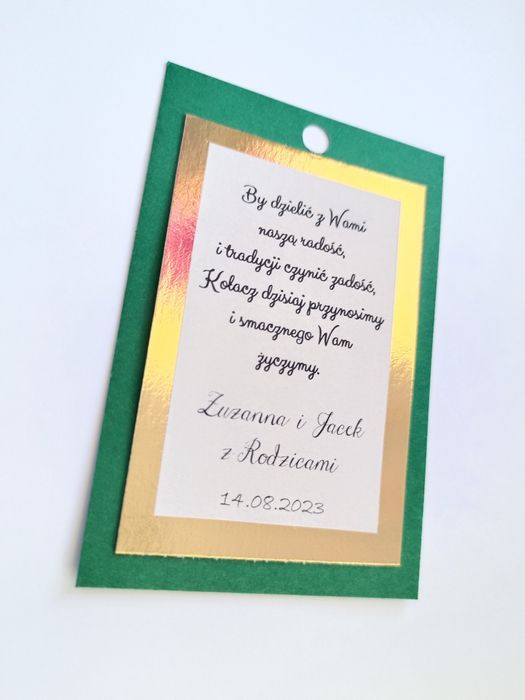 By dzielić z Wami
naszą radość,
i tradycji czynić zadość,
Kołacz dzisiaj przynosimy
i smacznego Wam
życzymy.
Zuzanna i Jacek
z Rodzicami
14.08.2023